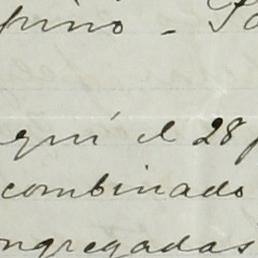 pino - 
equí el 28 p
combinado
ongregadas